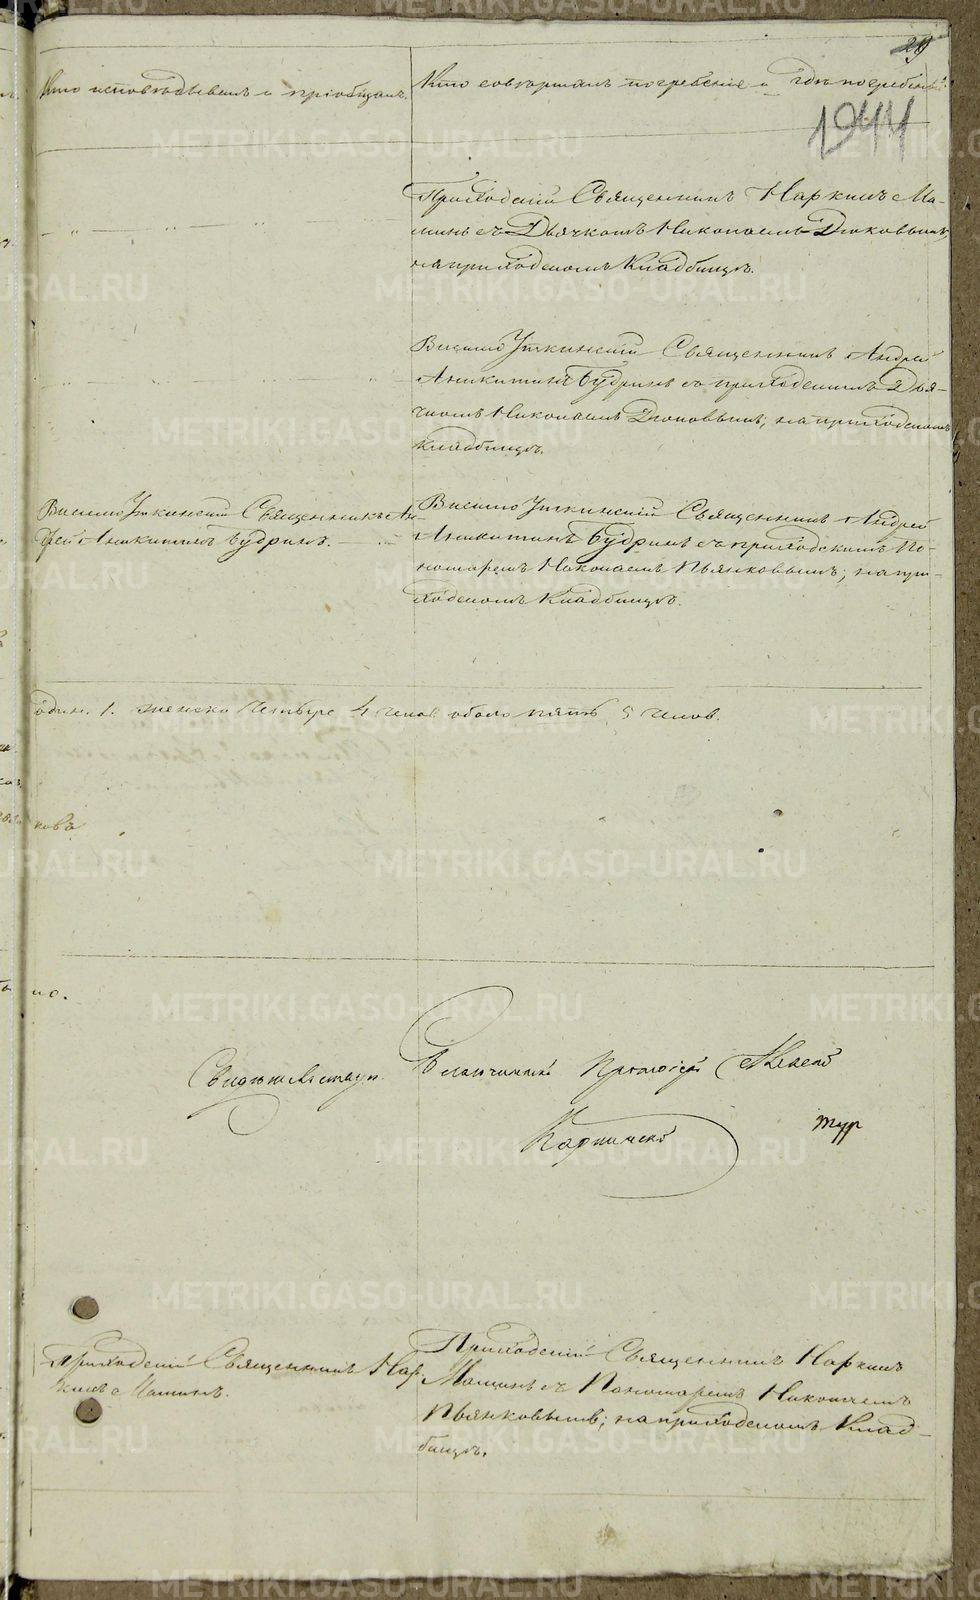 29
1944
Кто исповѣдывалъ и пріобщалъ.
Кто совершалъ погребеніе и гдѣ погребены
Приходскій Священникъ Наркисъ Ма-
минъ съ Дьячкомъ Николаемъ Дюковымъ,
на приходскомъ Кладбищѣ.
Висимо Уткинскій Священникъ Андрей
Аникитинъ Будринъ съ приходскимъ Дья-
чкомъ Николаемъ Дюковымъ, на приходскомъ
кладбищѣ.
Висимо Уткинскій Священникъ Ан-
дрей Аникитинъ Будринъ.
Висимо Уткинскій Священникъ Андрей
Аникитинъ Будринъ съ приходскимъ По-
номаремъ Николаемъ Пьянковымъ, на при-
ходскомъ Кладбищѣ.
одинъ. 1. женска четыре 4 челов. обоего пять 5 челов.
кова
но.
Свидѣтельствуп. Благочинный Протоіерей Алексѣй
Карпинскій
тур
Приходскій Священникъ Нар-
кисъ Маминъ.
Приходскій Священникъ Наркисъ
Маминъ съ Пономаремъ Николаемъ
Пьянковымъ; на приходскомъ Клад-
бищѣ.
METRIKI.GASO-URAL.RU